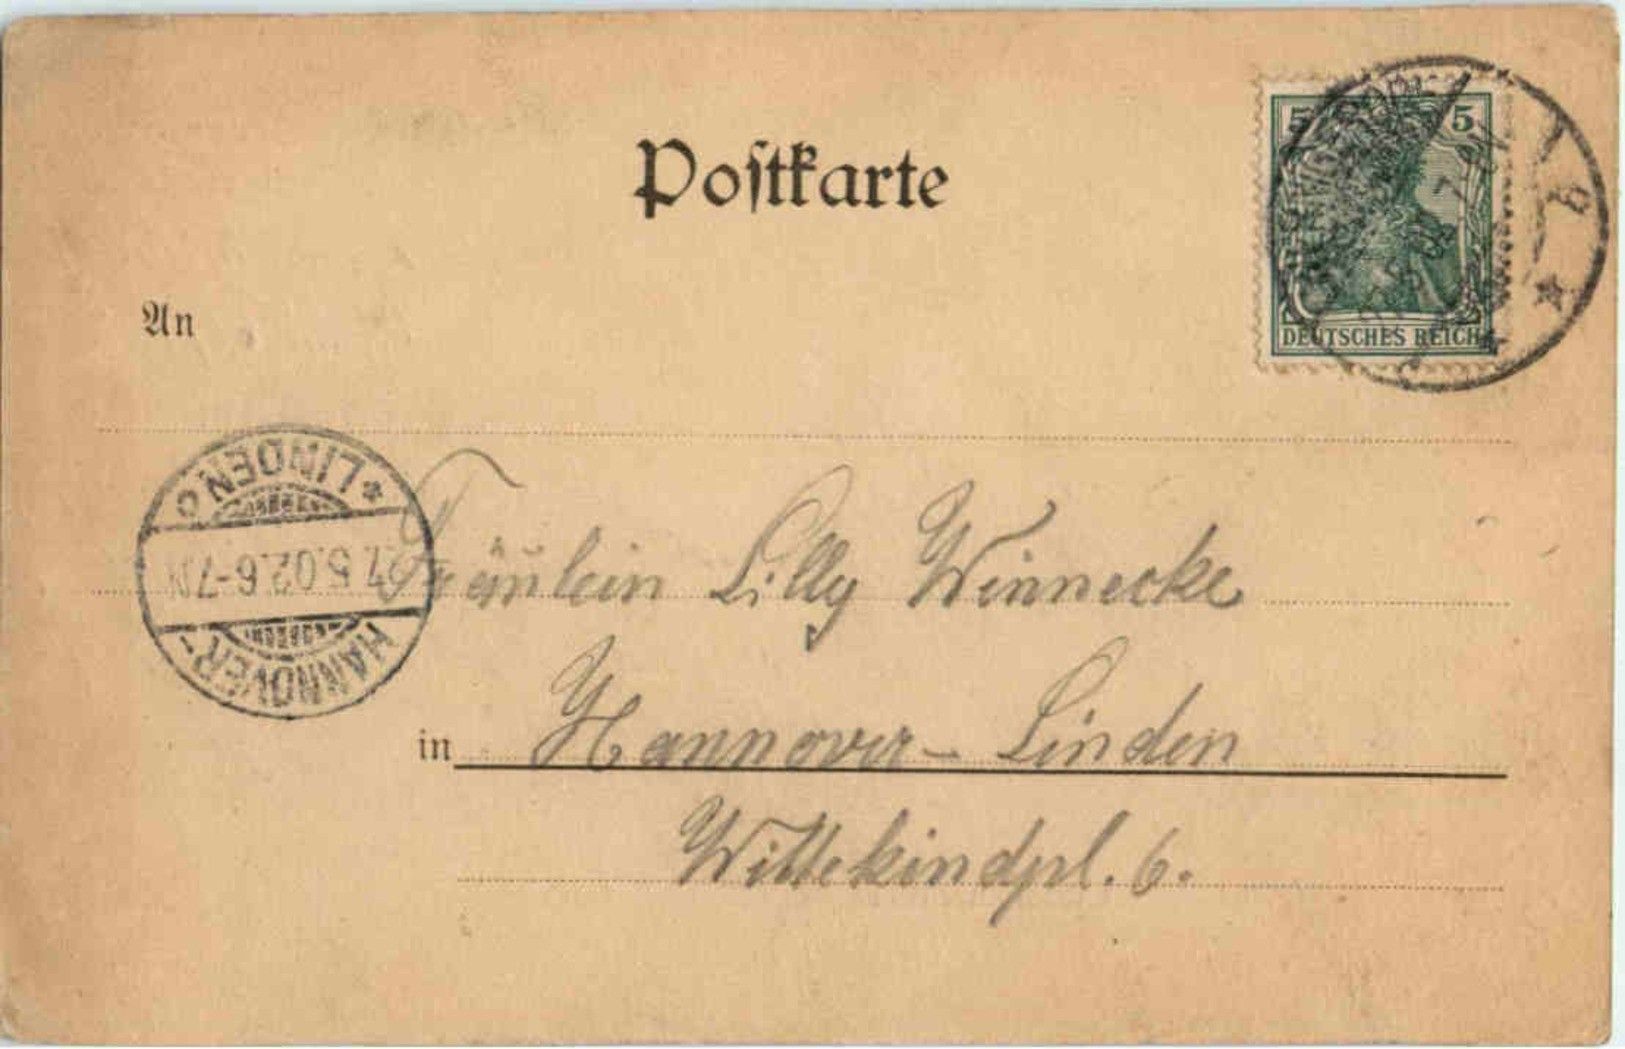 Postkarte
5 5
DEUTSCHES REICH
An
* LINDEN
27.5.02.6-7N
HANNOVER-
Fräulein Lilly Winnecke
in Hannover-Linden
Wittekindpl. 6.